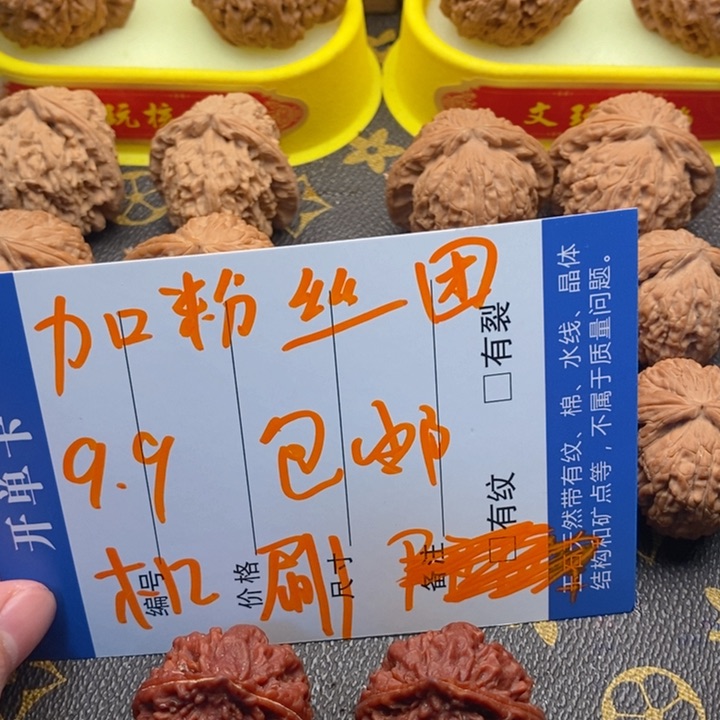 玩核
文玩
加粉丝团
9.9 包邮
开单卡
编号
价格
尺寸
备注
□有纹 □有裂
天然带有纹、棉、水线、晶体
结构和矿点等，不属于质量问题。